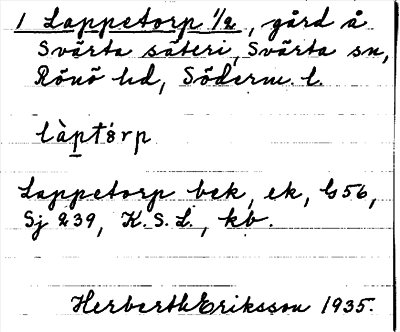 1 Lappetorp 1/2, gård å
Svärta säteri, Svärta sn,
Rönö hd, Söderm. l.
làptǫrp
Lappetorp bek, ek, G56,
Sj 239, K.S.L., kb.
Herberth Eriksson 1935.